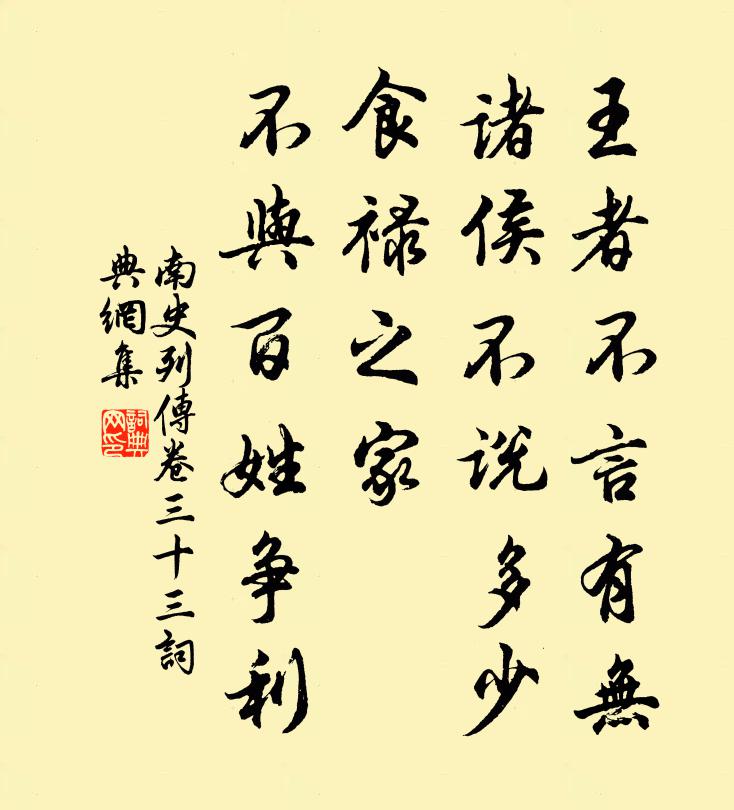 王者不言有無
諸侯不説多少
食禄之家
不與百姓争利
南史列傳卷三十三詞
典網集
詞典
网印